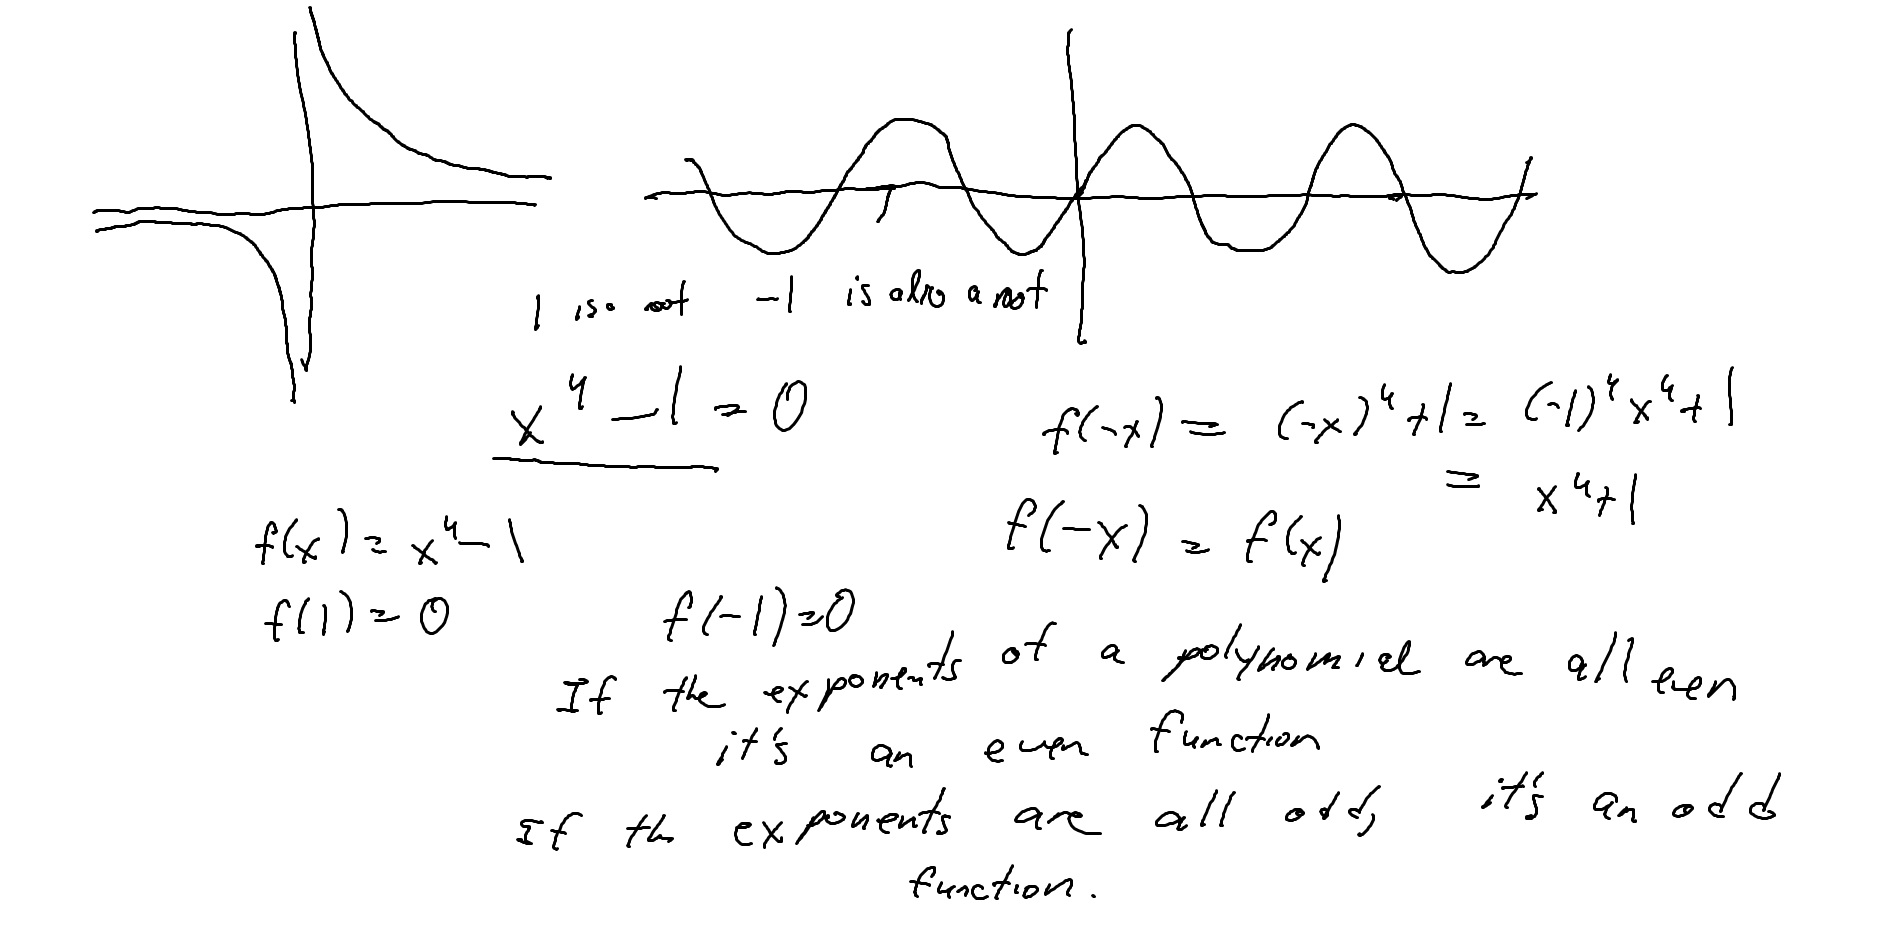 1 is a root -1 is also a root
x⁴ - 1 = 0
f(-x) = (-x)⁴ + 1 = (-1)⁴ x⁴ + 1
= x⁴ + 1
f(-x) = f(x)
f(x) = x⁴ - 1
f(1) = 0 f(-1) = 0
If the exponents of a polynomial are all even
it's an even function
If the exponents are all odd, it's an odd
function.